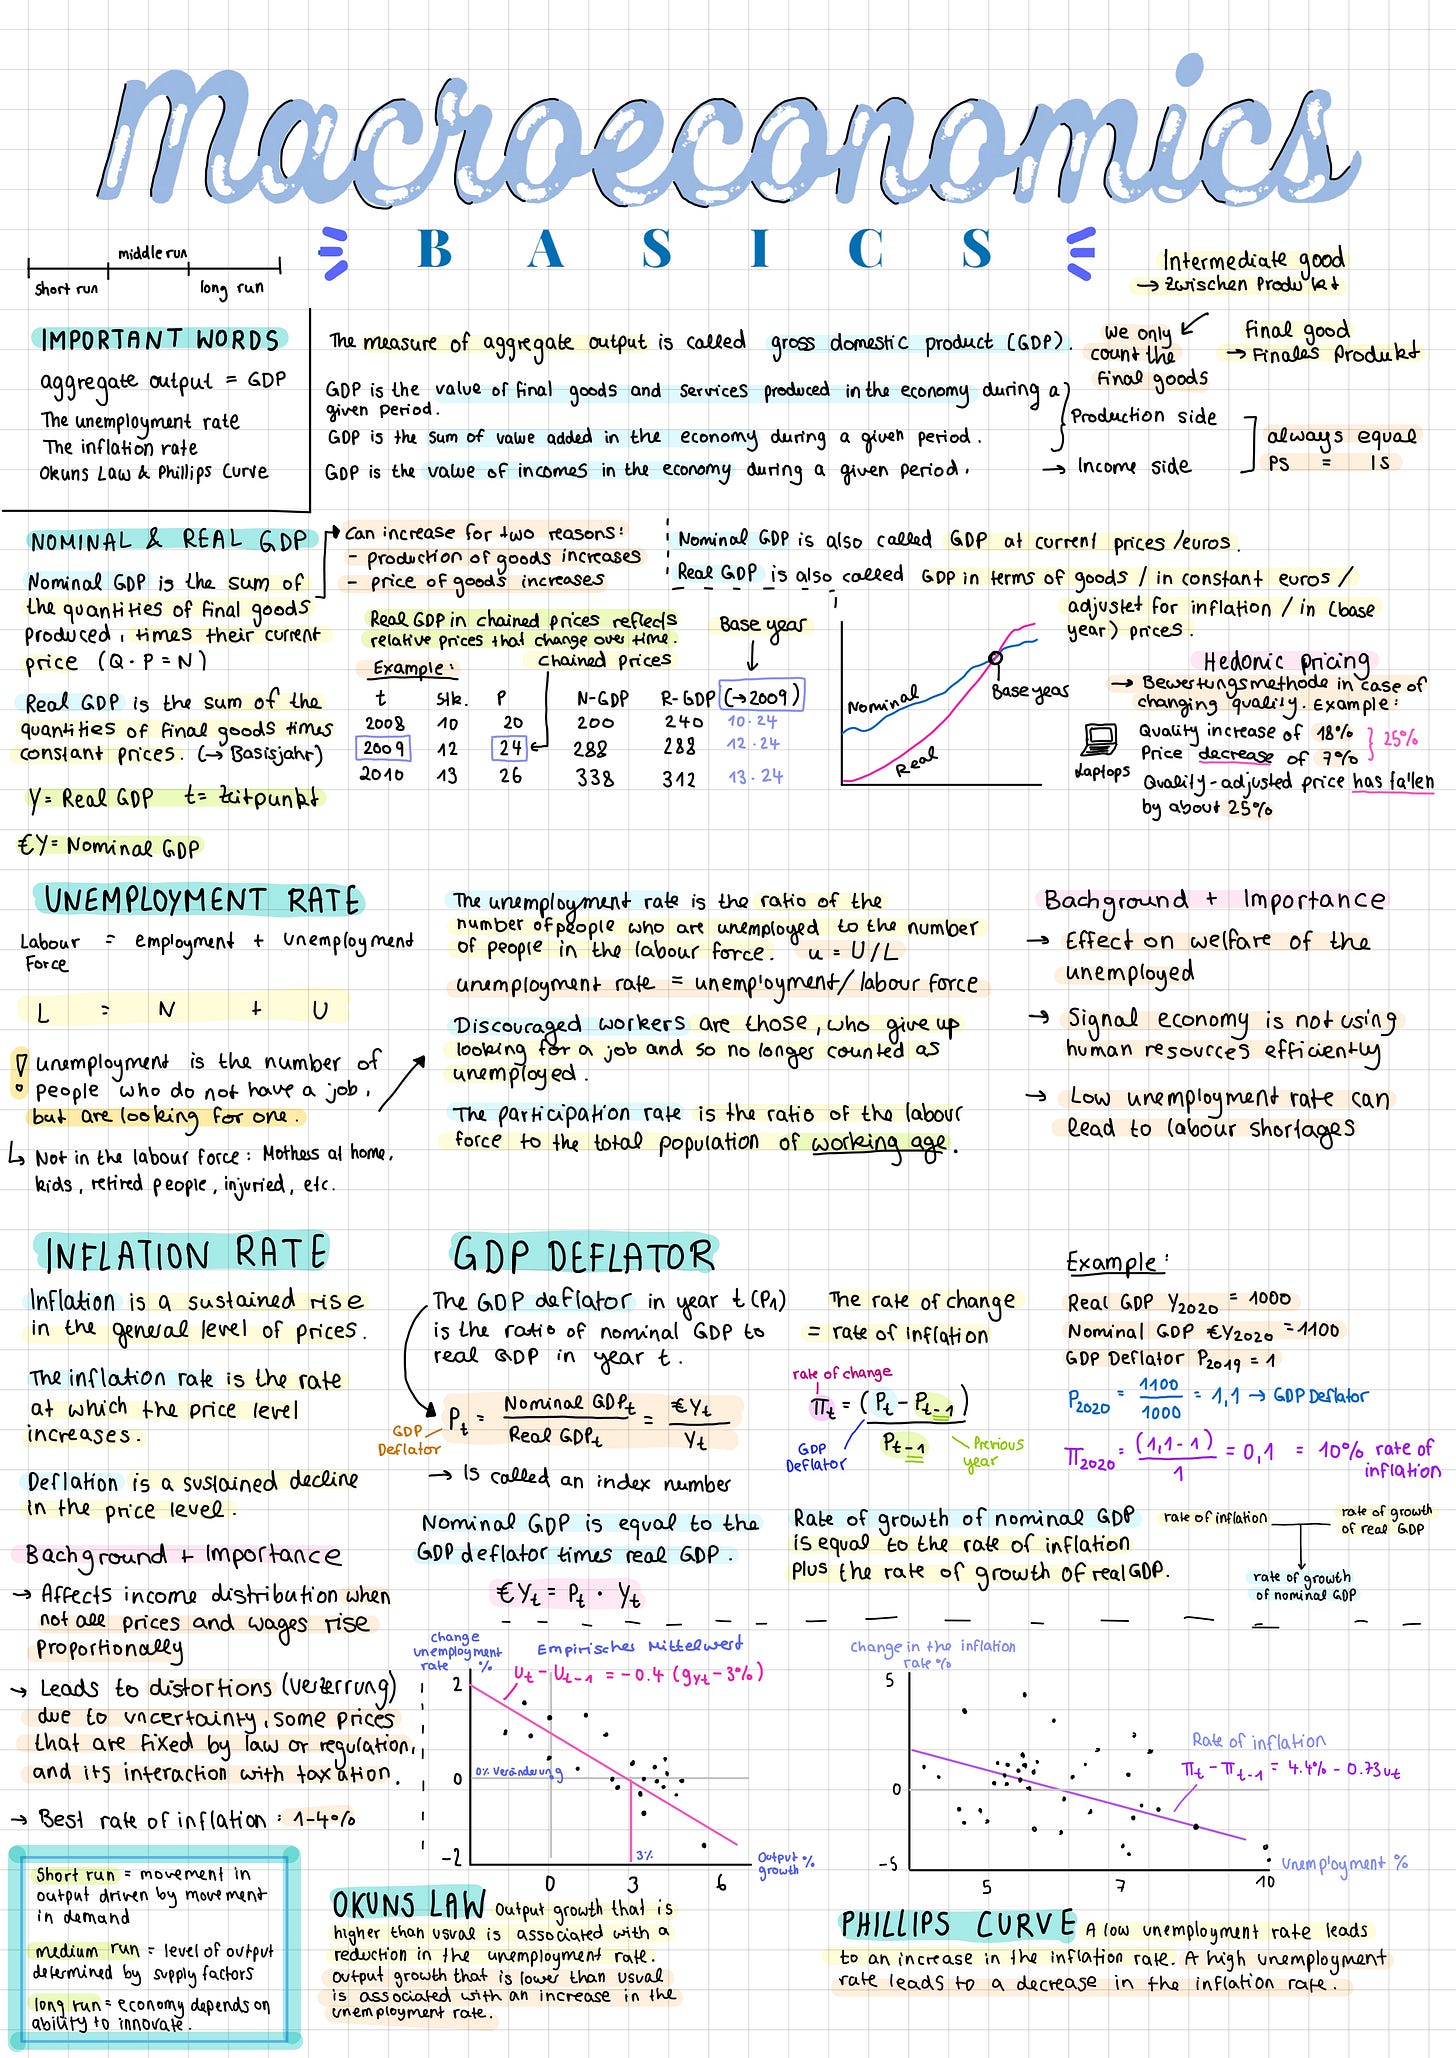 Macroeconomics
BASICS
middle run
short run
long run
Intermediate good
→ Zwischen Produkt
IMPORTANT WORDS
aggregate output = GDP
The unemployment rate
The inflation rate
Okuns Law & Phillips Curve
The measure of aggregate output is called gross domestic product (GDP).
GDP is the value of final goods and services produced in the economy during a
given period.
GDP is the sum of value added in the economy during a given period.
GDP is the value of incomes in the economy during a given period.
we only
count the
final goods
Final good
→ Finales Produkt
Production side
→ Income side
always equal
PS = IS
NOMINAL & REAL GDP
Nominal GDP is the sum of
the quantities of final goods
produced, times their current
price (Q · P = N)
Real GDP is the sum of the
quantities of final goods times
constant prices. (→ Basisjahr)
Y = Real GDP t = Zeitpunkt
€Y = Nominal GDP
Can increase for two reasons:
- production of goods increases
- price of goods increases
Nominal GDP is also called GDP at current prices /euros.
Real GDP is also called GDP in terms of goods / in constant euros /
adjustet for inflation / in (base
year) prices.
Real GDP in chained prices reflects
relative prices that change over time.
Example:
Chained prices
Base year
t Stk. P N-GDP R-GDP (→2009)
2008 10 20 200 240 10·24
2009 12 24 288 288 12·24
2010 13 26 338 312 13·24
Nominal
Real
Baseyeas
Hedonic pricing
→ Bewertungsmethode in case of
changing quality. Example:
Laptops
Quality increase of 18%
Price decrease of 7%
25%
Quality-adjusted price has fallen
by about 25%
UNEMPLOYMENT RATE
Labour = employment + unemployment
Force
L = N + U
! unemployment is the number of
people who do not have a job,
but are looking for one.
↳ Not in the labour force: Mothess at home,
kids, retired people, injuried, etc.
The unemployment rate is the ratio of the
number of people who are unemployed to the number
of people in the labour force. u = U/L
unemployment rate = unemployment/ labour force
Discouraged workers are those, who give up
looking for a job and so no longer counted as
unemployed.
The participation rate is the ratio of the labour
force to the total population of working age.
Bachground + Importance
→ Effect on welfare of the
unemployed
→ Signal economy is not using
human resources efficiently
→ Low unemployment rate can
lead to labour shortages
INFLATION RATE
Inflation is a sustained rise
in the general level of prices.
The inflation rate is the rate
at which the price level
increases.
Deflation is a sustained decline
in the price level.
Bachground + Importance
→ Affects income distribution when
not all prices and wages rise
proportionally
→ Leads to distortions (Verzerrung)
due to uncertainty, some prices
that are fixed by law or regulation,
and its interaction with taxation.
→ Best rate of inflation: 1-4%
Short run = movement in
output driven by movement
in demand
medium run = level of output
determined by supply factors
long run = economy depends on
ability to innovate.
GDP DEFLATOR
The GDP deflator in year t (P₁)
is the ratio of nominal GDP to
real GDP in year t.
Pt = Nominal GDPt / Real GDPt = €Yt / Yt
GDP
Deflator
→ Is called an index number
Nominal GDP is equal to the
GDP deflator times real GDP.
€Yt = Pt · Yt
The rate of change
= rate of inflation
rate of change
πt = (Pt - Pt-1) / Pt-1
GDP
Deflator
Previous
year
Example:
Real GDP Y2020 = 1000
Nominal GDP €Y2020 = 1100
GDP Deflator P2019 = 1
P2020 = 1100 / 1000 = 1,1 → GDP Deflator
π2020 = (1,1-1) / 1 = 0,1 = 10% rate of
inflation
Rate of growth of nominal GDP
is equal to the rate of inflation
plus the rate of growth of real GDP.
rate of inflation
rate of growth
of real GDP
rate of growth
of nominal GDP
change
unemployment
rate %
Empirisches Mittelwert
Ut - Ut-1 = -0.4 (gyt - 3%)
2
0
-2
0% Veränderung
3%
Output %
growth
0 3 6
OKUNS LAW Output growth that is
higher than usual is associated with a
reduction in the unemployment rate.
Output growth that is lower than usual
is associated with an increase in the
unemployment rate.
Change in the inflation
rate %
5
0
-5
Rate of inflation
πt - πt-1 = 4.4% - 0.73ut
Unemployment %
5 7 10
PHILLIPS CURVE A low unemployment rate leads
to an increase in the inflation rate. A high unemployment
rate leads to a decrease in the inflation rate.